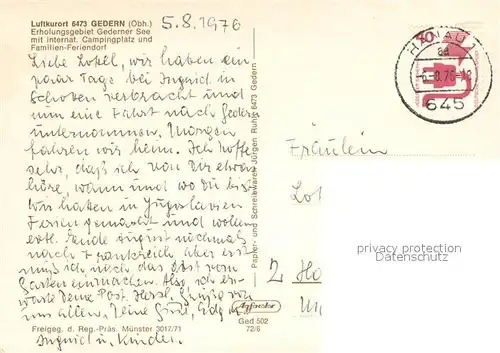 Luftkurort 6473 GEDERN (Obh.)
Erholungsgebiet Gederner See
mit internat. Campingplatz und
Familien-Feriendorf
5.8.1976
Liebe Lottel, wir haben ein
paar Tage bei Ingrid in
Schotten verbracht und
nun eine Fahrt nach Gedern
unternommen. Morgen
fahren wir heim. Ich hoffe
sehr, daß ich von Dir etwas
höre, wann und wo Du bist.
Wir haben in Jugoslavien
Ferien gemacht und wollen
evtl. Ende August nochmals
nach Frankreich aber erst
muß ich noch das Obst vom
Garten einmachen. Also, ich er-
warte Deine Post. Herzl. Grüße von
uns allen, Deine
Ingrid u. Kinder.
Freigeg. d. Reg.-Präs. Münster 3017/71
Papier- und Schreibwaren Jürgen Ruhl, 6473 Gedern
Ged 502
72/6
HANAU 1
ad
-6.-8.76-18
645
40
Fräulein
Lot
2 Ho
privacy protection
Datenschutz